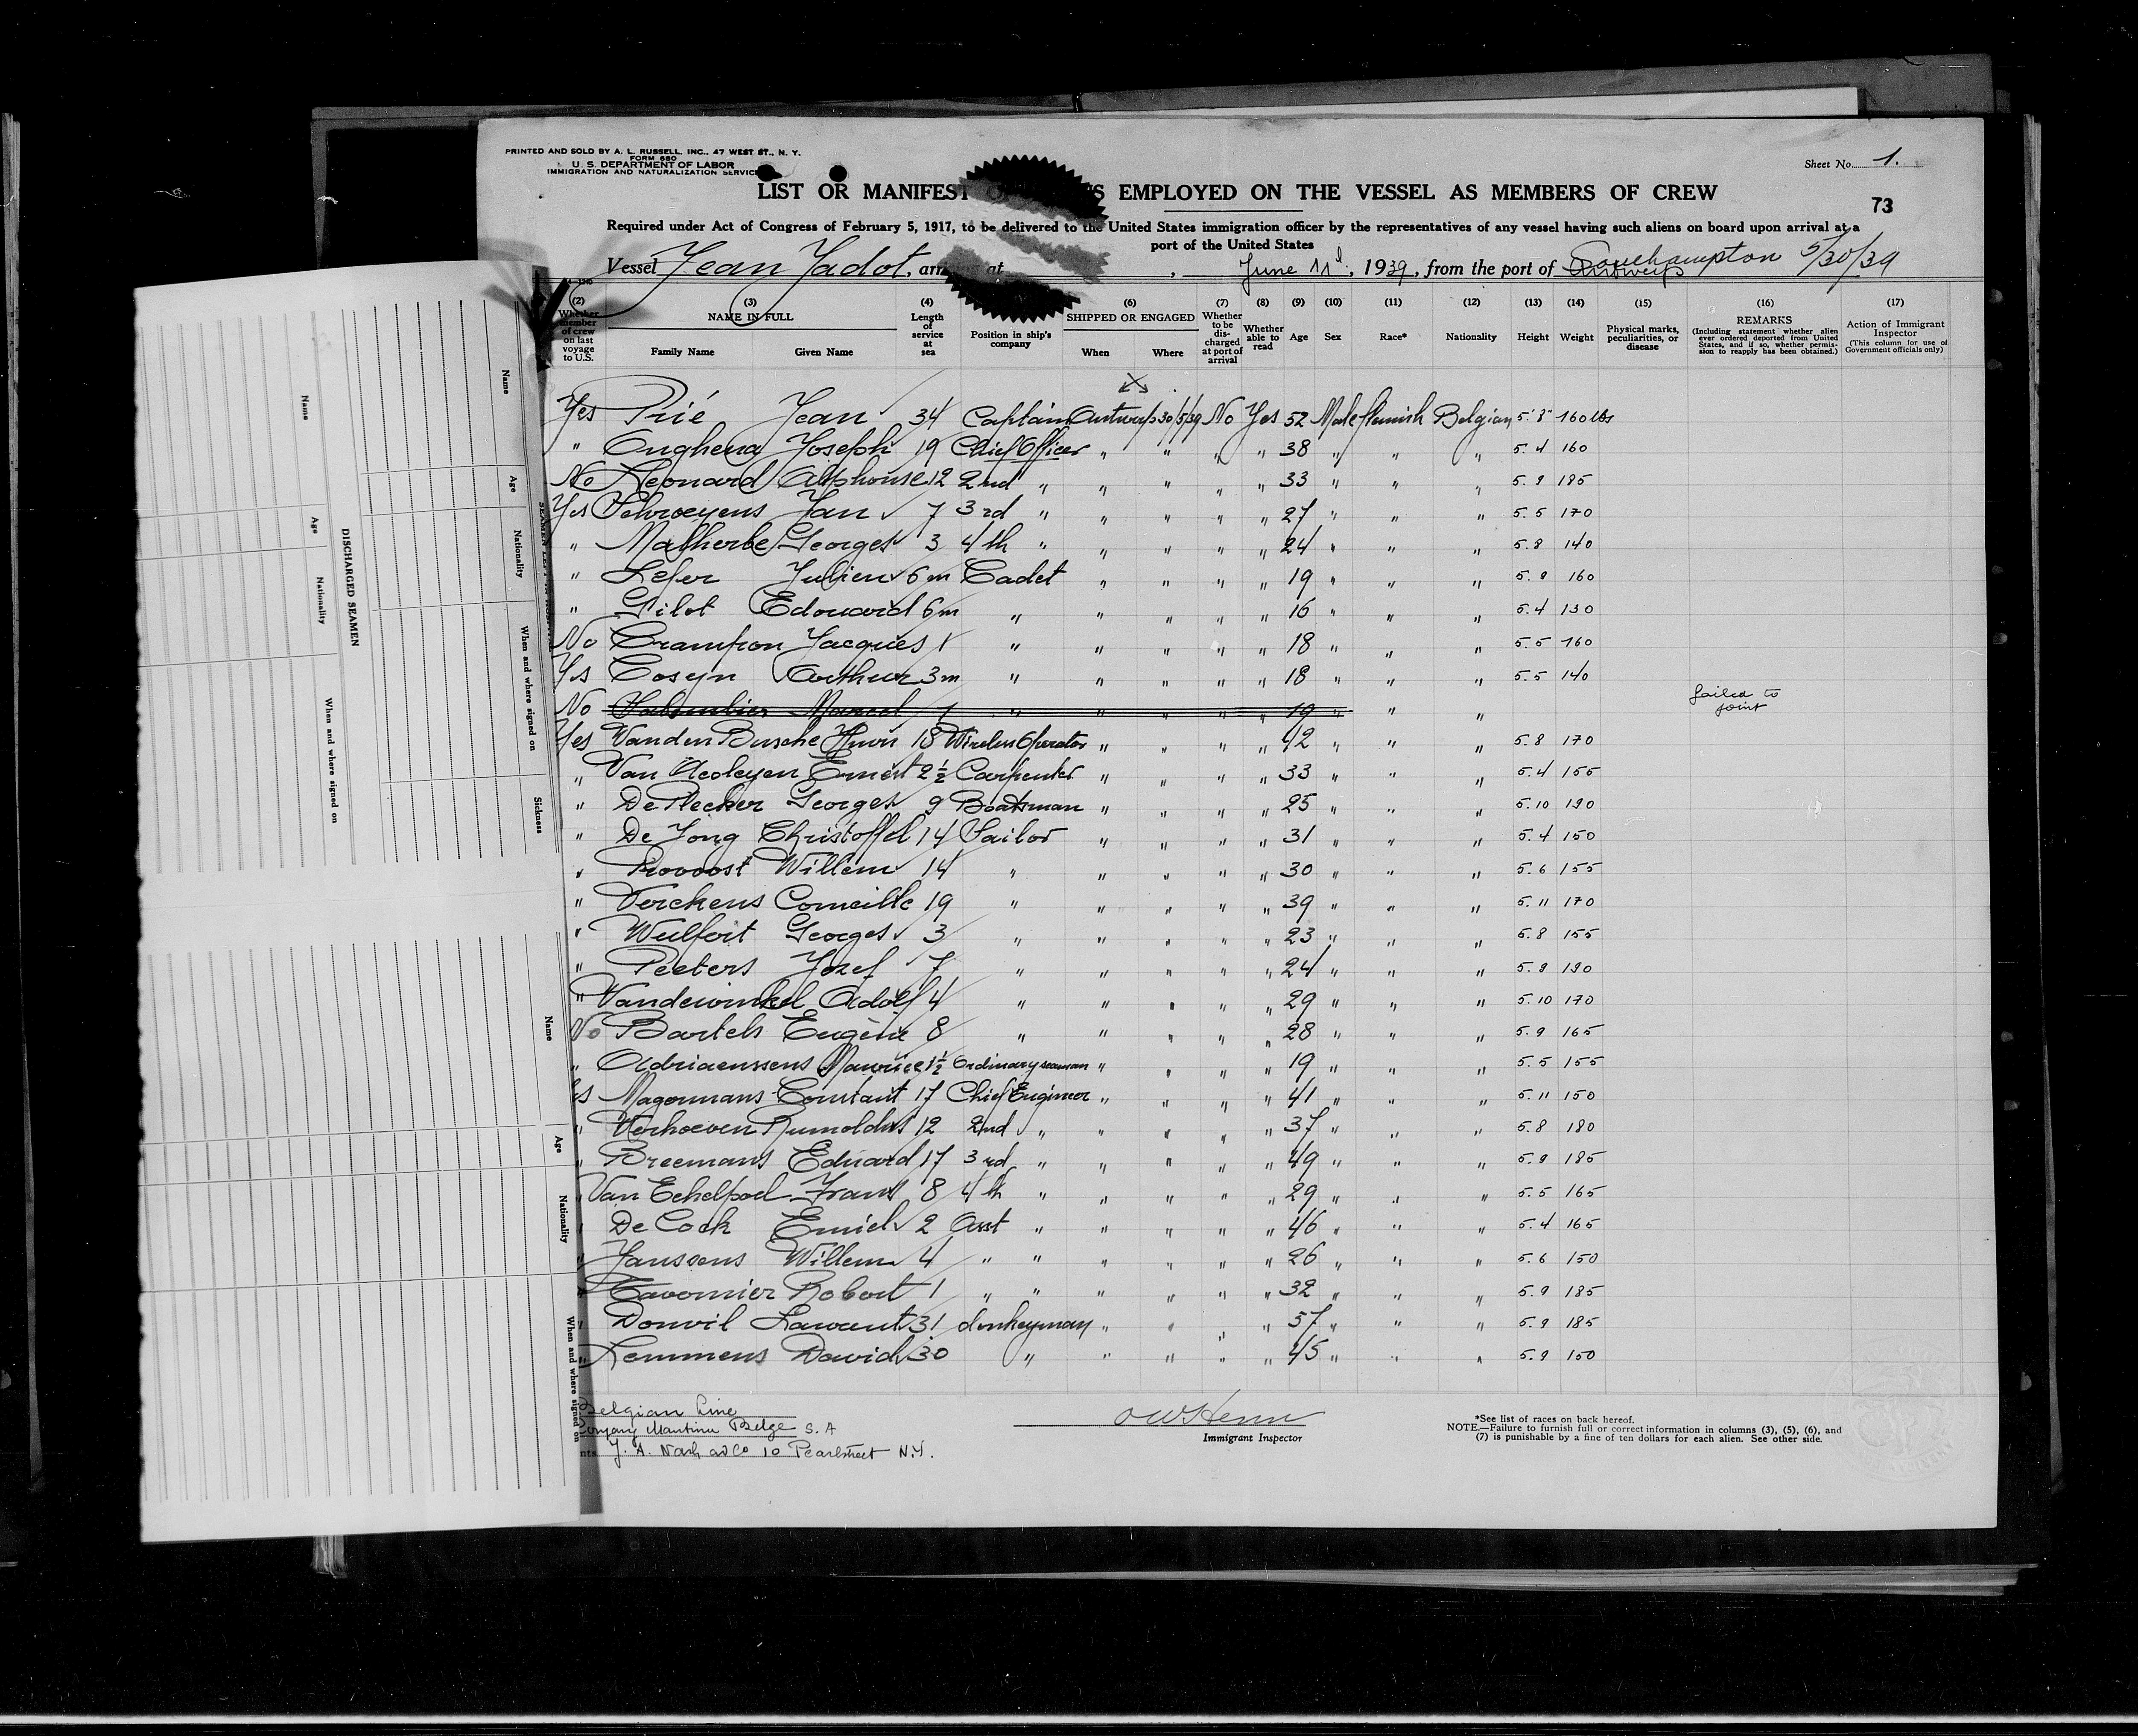 PRINTED AND SOLD BY A. L. RUSSELL, INC., 47 WEST ST., N. Y.
FORM 680
U. S. DEPARTMENT OF LABOR
IMMIGRATION AND NATURALIZATION SERVICE
Sheet No. 1.
LIST OR MANIFEST EMPLOYED ON THE VESSEL AS MEMBERS OF CREW
73
Required under Act of Congress of February 5, 1917, to be delivered to the United States immigration officer by the representatives of any vessel having such aliens on board upon arrival at a
port of the United States
Vessel Jean Jadot, at , June 11, 1939, from the port of Antwerp Southampton 5/30/39
(2) (3) (4) (6) (7) (8) (9) (10) (11) (12) (13) (14) (15) (16) (17)
Whether member of crew on last voyage to U.S. NAME IN FULL Family Name Given Name Length of service at sea Position in ship's company SHIPPED OR ENGAGED When Where Whether to be discharged at port of arrival Whether able to read Age Sex Race* Nationality Height Weight Physical marks, peculiarities, or disease REMARKS (Including statement whether alien ever ordered deported from United States, and if so, whether permission to reapply has been obtained.) Action of Immigrant Inspector (This column for use of Government officials only)
Yes Prié Jean 34 Captain Antwerp 30/5/39 No Yes 52 Male flemish Belgian 5.8" 160 lbs
" Enghena Joseph 19 Chief Officer " " " " 38 " " " 5.4 160
No Leonard Alphonse 12 2nd " " " " " 33 " " " 5.9 185
Yes Schroeyens Jan 7 3rd " " " " " 27 " " " 5.5 170
" Malherbe Georges 3 4th " " " " " 24 " " " 5.8 140
" Lefer Julien 6m Cadet " " " " 19 " " " 5.9 160
" Gilot Edouard 6m " " " " " 16 " " " 5.4 130
No Crampon Jacques 1 " " " " " 18 " " " 5.5 160
Yes Cosyn Arthur 3m " " " " " 18 " " " 5.5 140
No Marcel 1 " " " " " 19 " " " failed to joint
Yes Vanden Bussche 18 Wireless Operator " " " " 42 " " " 5.8 170
" Van Ernest 2½ Carpenter " " " " 33 " " " 5.4 155
" De Plecker Georges 9 Boatsman " " " " 25 " " " 5.10 190
" De Jong Christoffel 14 Sailor " " " " 31 " " " 5.4 150
" Provoost Willem 14 " " " " " 30 " " " 5.6 155
" Verckens Corneille 19 " " " " " 39 " " " 5.11 170
" Wulfert Georges 3 " " " " " 23 " " " 5.8 155
" Peeters Jozef 7 " " " " " 24 " " " 5.9 190
" Vandewinkel Adolf 4 " " " " " 29 " " " 5.10 170
No Bartels Eugène 8 " " " " " 28 " " " 5.9 165
" Adriaenssens Maurice 1½ Ordinary seaman " " " " 19 " " " 5.5 155
Magermans Constant 17 Chief Engineer " " " " 41 " " " 5.11 150
" Verhoeven Rumoldus 12 2nd " " " " " 37 " " " 5.8 180
" Breemans Eduard 17 3rd " " " " " 49 " " " 5.9 185
" Van Echelpoel Frans 8 4th " " " " " 29 " " " 5.5 165
" De Cock Emiel 2 Asst " " " " " 46 " " " 5.4 165
" Janssens Willem 4 " " " " " " 26 " " " 5.6 150
" Tavernier Robert 1 " " " " " " 32 " " " 5.9 185
" Donvil Laurent 31 donkeyman " " " " 57 " " " 5.9 185
" Lemmens David 30 " " " " " 45 " " " 5.9 150
Belgian Line
Company Maritime Belge S. A
J. A. Nash and Co 10 Pearlstreet N.Y.
Immigrant Inspector
*See list of races on back hereof.
NOTE.—Failure to furnish full or correct information in columns (3), (5), (6), and
(7) is punishable by a fine of ten dollars for each alien. See other side.
DISCHARGED SEAMEN
Name Age Nationality When and where signed on
Name Age Nationality When and where signed on Sickness
Name Age Nationality When and where signed on